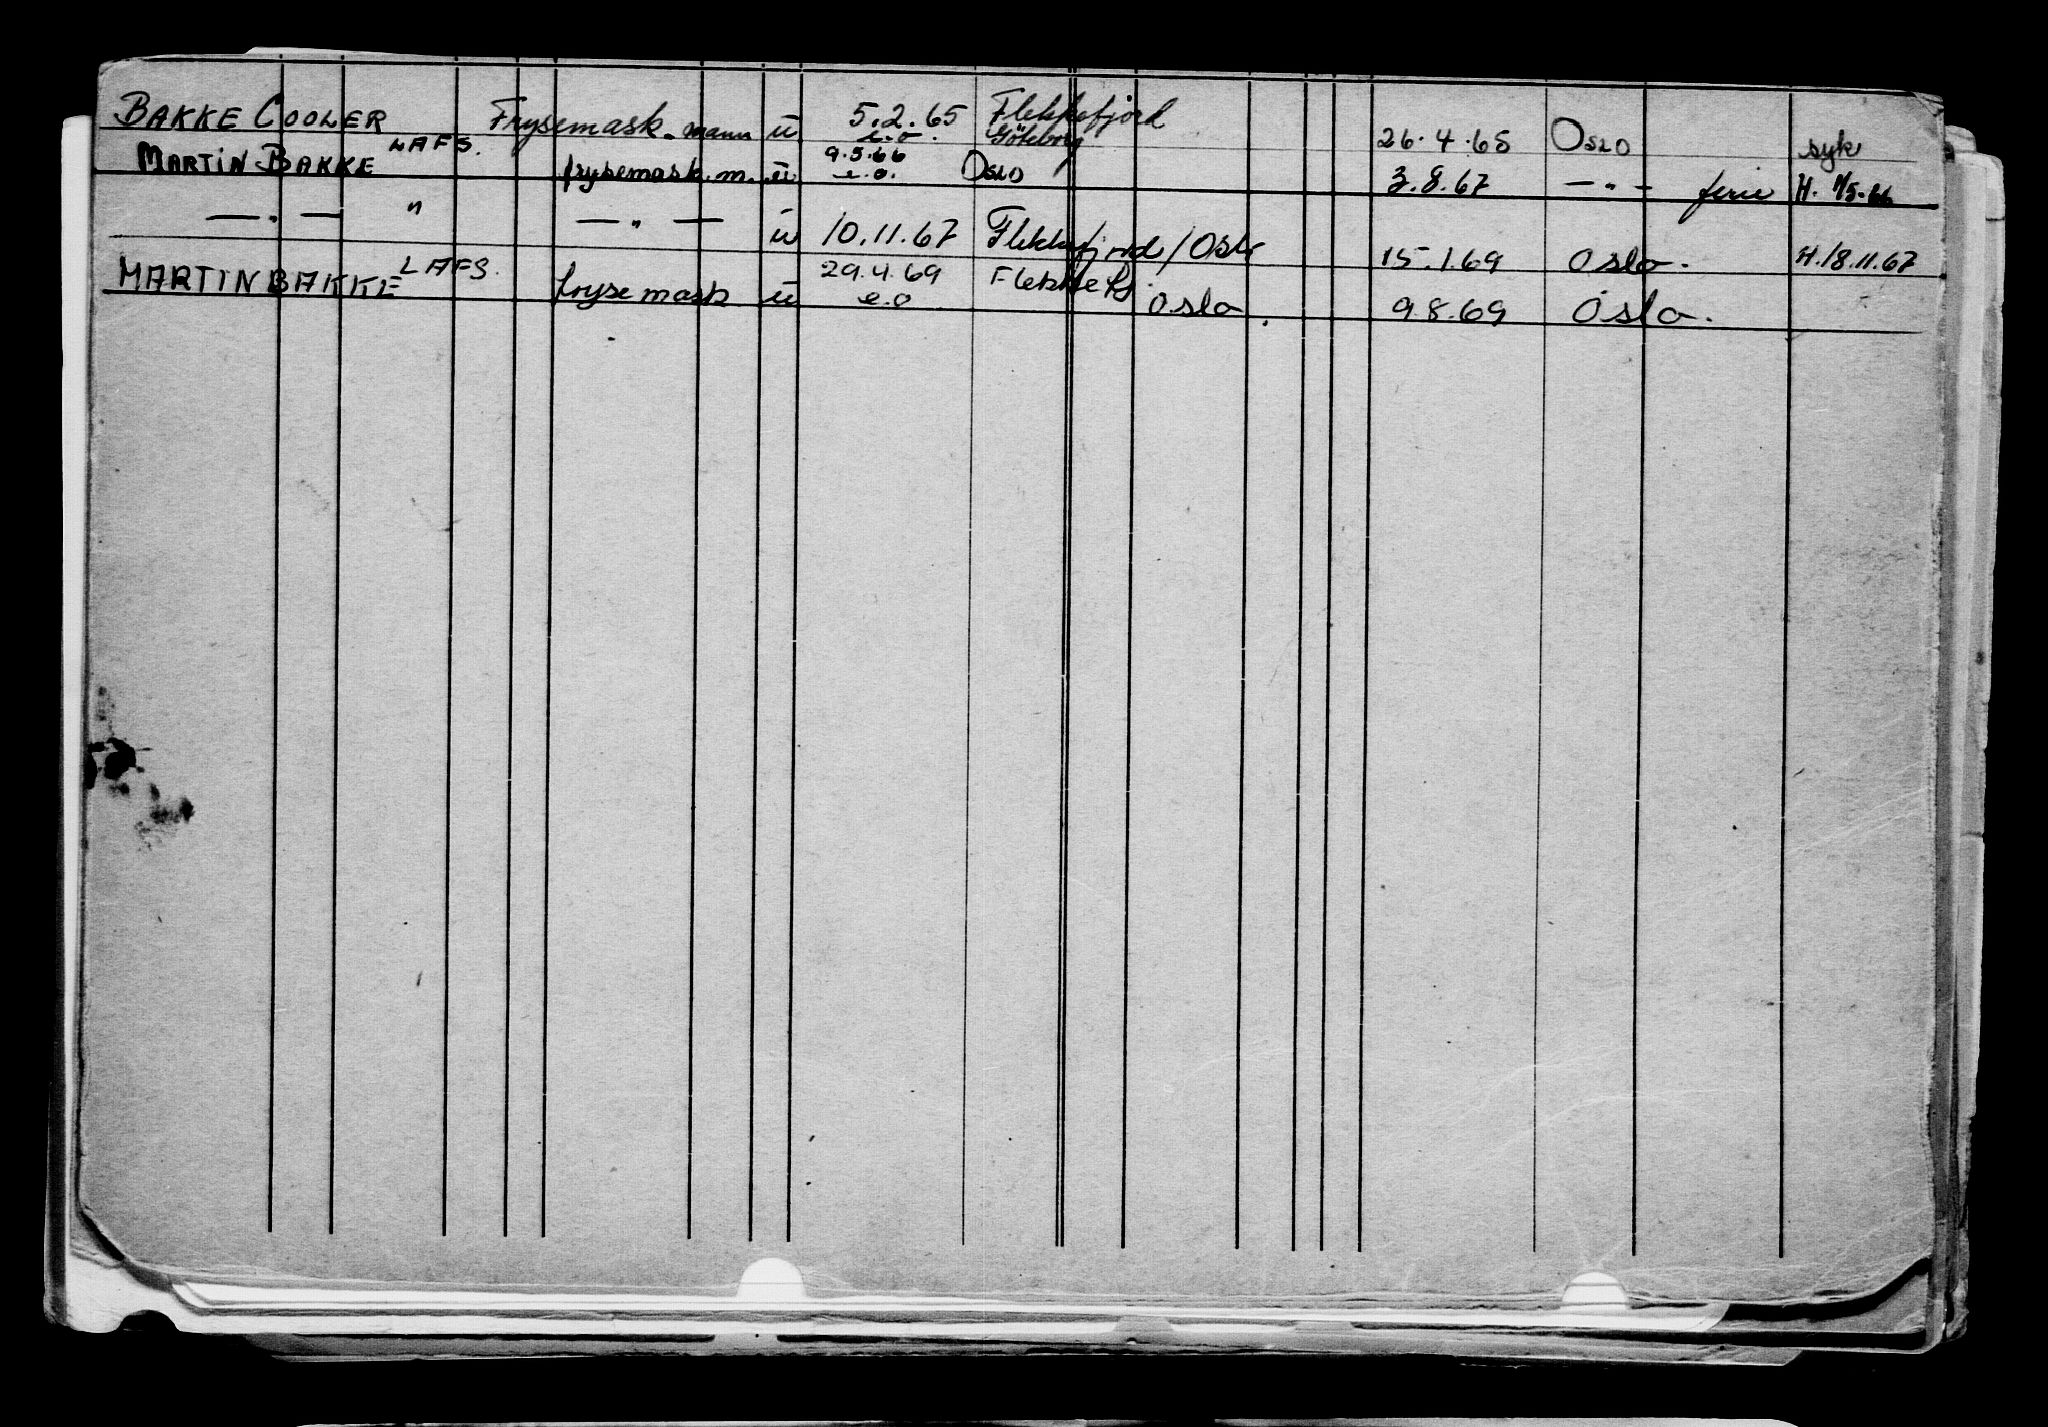 BAKKE COOLER Frysemask.mann u 5.2.65 e.o. Flekkefjord Göteborg 26.4.65 OSLO syk
MARTIN BAKKE LAFS. frysemask.m. u 9.5.66 e.o. OSLO 3.8.67 — " — ferie H. 1/5-66
— " — " — " — u 10.11.67 Flekkefjord/Oslo 15.1.69 Oslo. H.18.11.67
MARTIN BAKKE LAFS. frysemask u 29.4.69 e.o Flekkefj. Oslo. 9.8.69 Oslo.